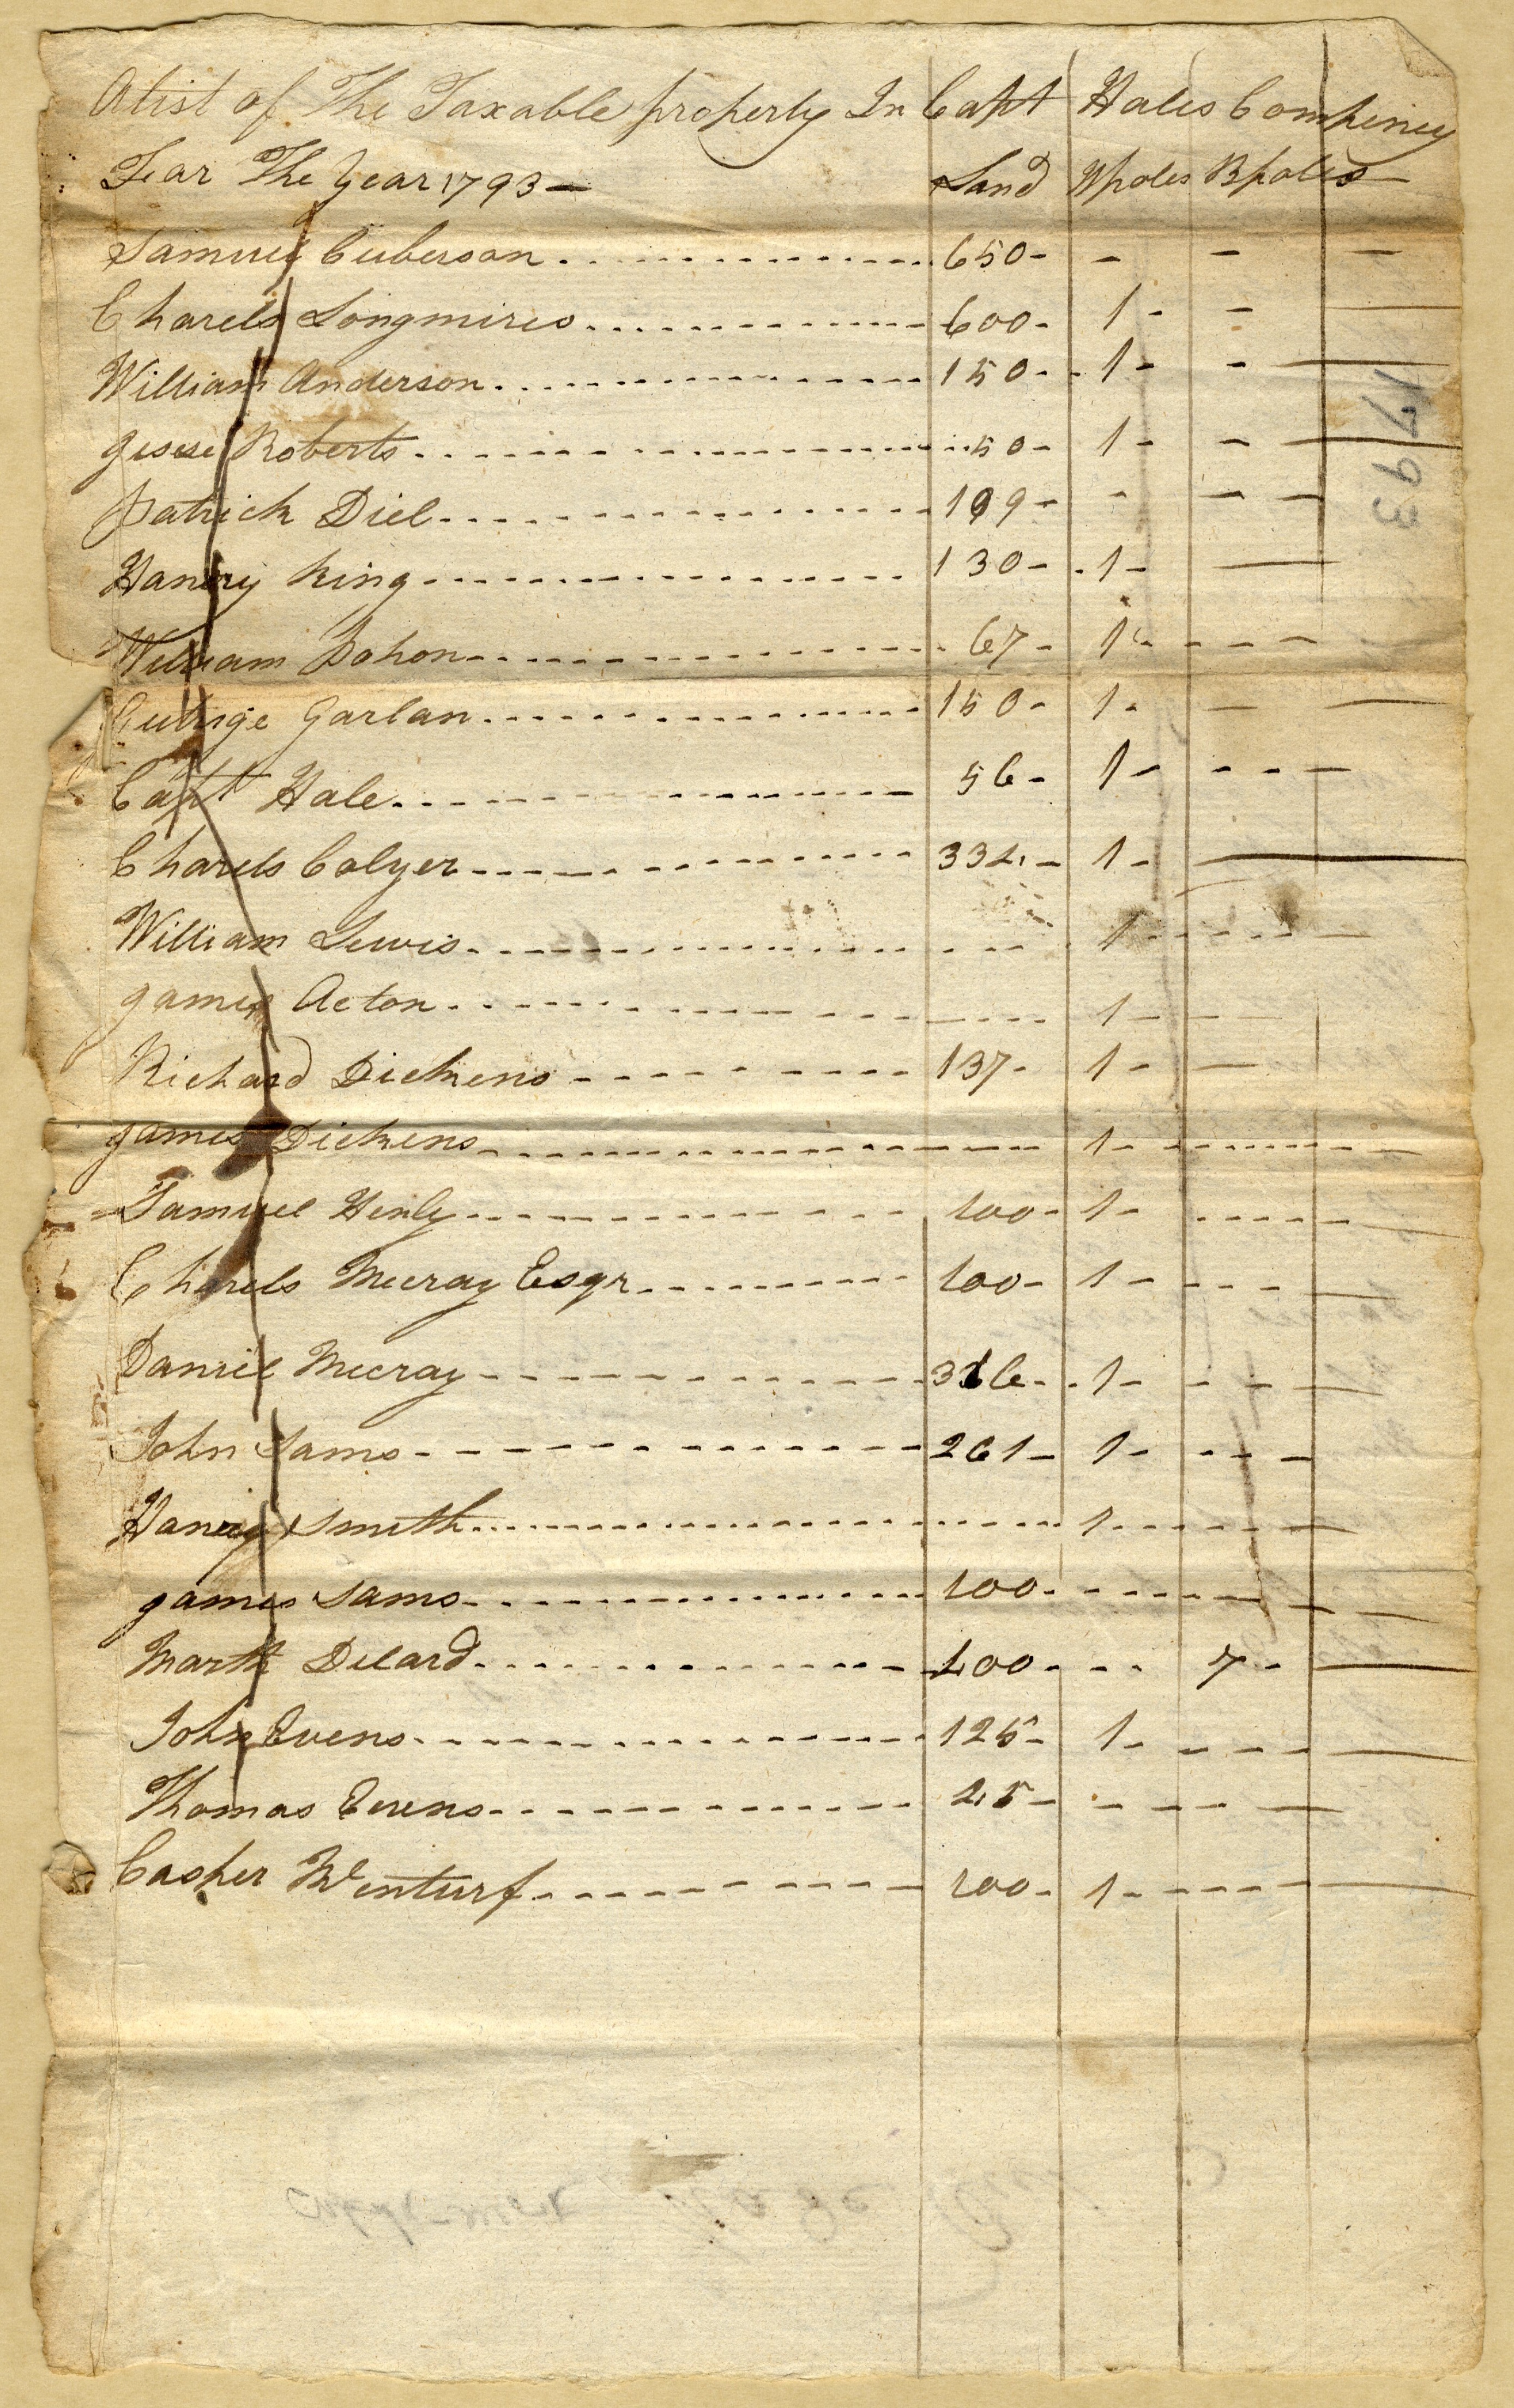 A List of The Taxable property In Capt Hales Compeney
Fear The Year 1793 — Land Wpoles Bpoles
Samuel Cuberson 650 - - - -
Charels Longmires 600 - 1 - - -
William Anderson 150 - 1 - - -
Jesse Roberts 50 - 1 - - -
Patrick Diel 199 - - - -
Hanery King 130 - 1 - -
William Bohon 67 - 1 - - - -
Gutrige Garlan 150 - 1 - - -
Capt Hale 56 - 1 - - - -
Charels Colyer 334 - 1 - -
William Lewis 1 - - - -
James Acton 1 - -
Richard Dickens 137 - 1 - -
James Dickens 1 - - - -
Samuel Henly 100 - 1 - - - -
Charels Mccray Esqr 100 - 1 - - - -
Daniel Mccray 316 - 1 - - - -
John Sams 261 - 1 - - - -
Hanery Smith 1 - - - -
James Sams 100 - - - - -
Marth Delard 400 - - - 7 - -
John Evens 125 - 1 - - - -
Thomas Evens 25 - - - - -
Casper Wenturf 100 - 1 - - - -
1793